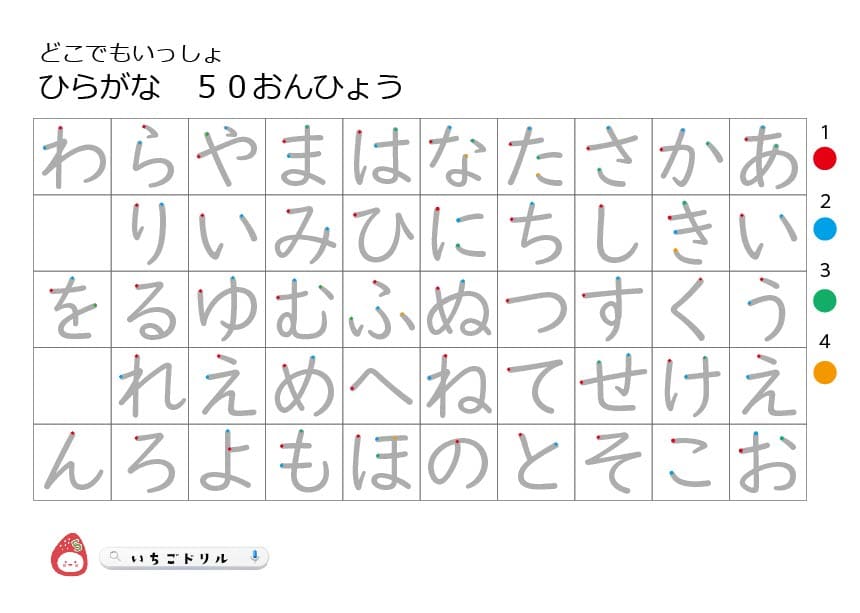 どこでもいっしょ
ひらがな　５０おんひょう
わ ら や ま は な た さ か あ
り い み ひ に ち し き い
を る ゆ む ふ ぬ つ す く う
れ え め へ ね て せ け え
ん ろ よ も ほ の と そ こ お
1
2
3
4
いちごドリル